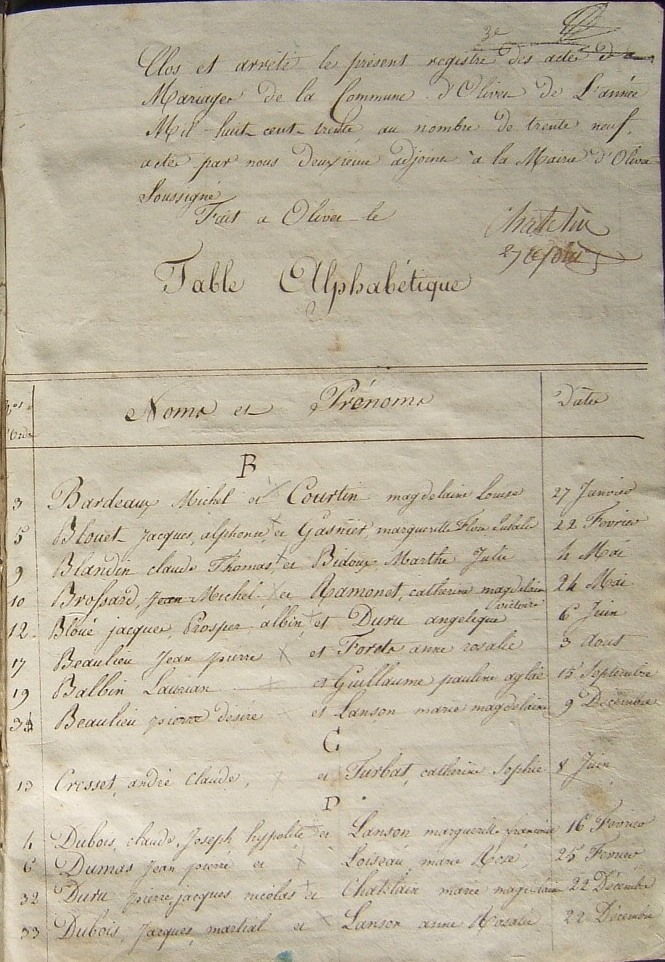 3e
Clos et arrêté le présent registre des actes de
Mariages de la Commune d'Olivet de L'année
Mil-huit-cent-trente au nombre de trente neuf,
actes par nous deuxième adjoint à la Mairie d'Olivet
Soussigné
Fait a Olivet le
Table Alphabétique
Nos Noms et Prénoms Dates
B
3 Bardeaux Michel et Courtin magdelaine Louise 27 Janvier
5 Blouet Jacques, alphonse et Gasnier, marguerite Flore Eulalie 22 Février
9 Blandin claude Thomas et Bidoux Marthe Julie 4 Mai
10 Brossard, Jean Michel et Ramonet, catherine magdelaine 24 Mai
victoire
12 Bloué jacques, Prosper albin et Duru angelique 6 Juin
17 Beaulieu Jean pierre et anne rosalie 3 aout
19 Balbin Laurian et Guillaume pauline aglaé 15 Septembre
34 Beaulieu pierre désiré et Lanson marie magdelaine 9 Décembre
C
13 Cresset, andré Claude, et Turbat, catherine Sophie 8 Juin
D
4 Dubois, claude, Joseph hyppolite et Lanson marguerite francoise 16 Fevrier
6 Dumas Jean pierre et Loiseau marie Rose, 25 Fevrier
32 Duru pierre, jacques nicolas et Chatelain marie magdelaine 22 Décembre
33 Dubois, Jacques, martial et Lanson anne Rosalie 22 Décembre